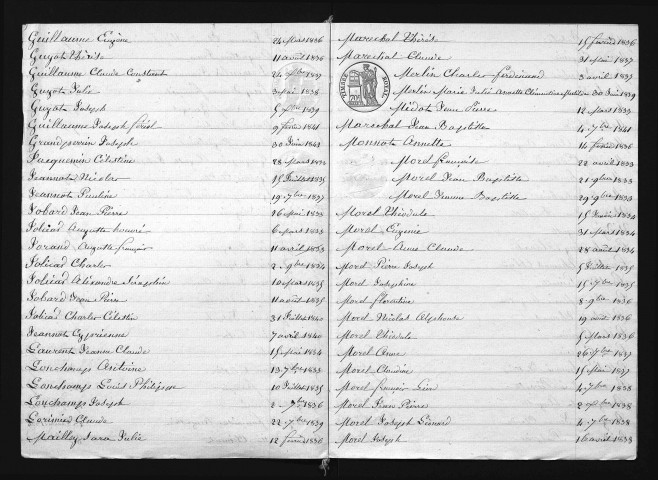 Guillaume Eugène 24 Mars 1836
Guyot Thérèse 11 août 1836
Guillaume Claude Constant 24 9bre 1837
Guyot Julie 3 Mai 1838
Guyot Joseph 5 1839
Guillaume Joseph 9 février 1841
Grandperrin Joseph 30 Juin 1841
Jacquemin Célestine 28 Mars 1833
Jeannot Nicolas 15 Juillet 1835
Jeannot Pauline 19 7bre 1837
Jobard Jean Pierre 16 Mai 1833
Joliéar Augustte honoré 6 Mars 1833
Augustte françois 11 avril 1833
Charles 2 9bre 1834
Alexandre Séraphin 10 Mars 1835
Jobard Jean Pierre 11 août 1835
Charles Célestin 31 Juillet 1840
Jeannot Cyprienne 7 avril 1840
Laurent Jeanne Claude 15 Mai 1834
Lonchamps Antoine 13 7bre 1833
Lonchamps Louis Philippe 10 Juillet 1835
Lonchamps Joseph 2 7bre 1836
Lorimier Claude 22 7bre 1839
Mailley Julie 12 février 1836
Marechal Thérèse 15 février 1836
Marechal Claude 31 Mai 1837
TIMBRE ROYAL
Merlin Charles ferdinand 3 avril 1837
Merlin Marie Julie Annette Clémentine 30 Juin 1839
Médot Jean Pierre 12 Mars 1833
Marechal Jean Baptiste 4 7bre 1841
Monnot Annette 14 février 1836
Morel françoise 22 avril 1833
Morel Jean Baptiste 21 9bre 1833
Morel Jeanne Baptiste 29 9bre 1833
Morel Théodule 15 1834
Morel Eugénie 31 Mars 1834
Morel Anne Claude 28 août 1834
Morel Pierre Joseph 5 1835
Morel Joséphine 15 7bre 1835
Morel florentine 8 9bre 1836
Morel Nicolas Alphonse 19 août 1836
Morel Théodule 5 Mars 1836
Morel Anne 26 7bre 1837
Morel Claudine 15 Mai 1837
Morel françois 4 7bre 1838
Morel Jean Pierre 2 7bre 1838
Morel Joseph Léonard 4 7bre 1838
Morel Joseph 16 août 1838